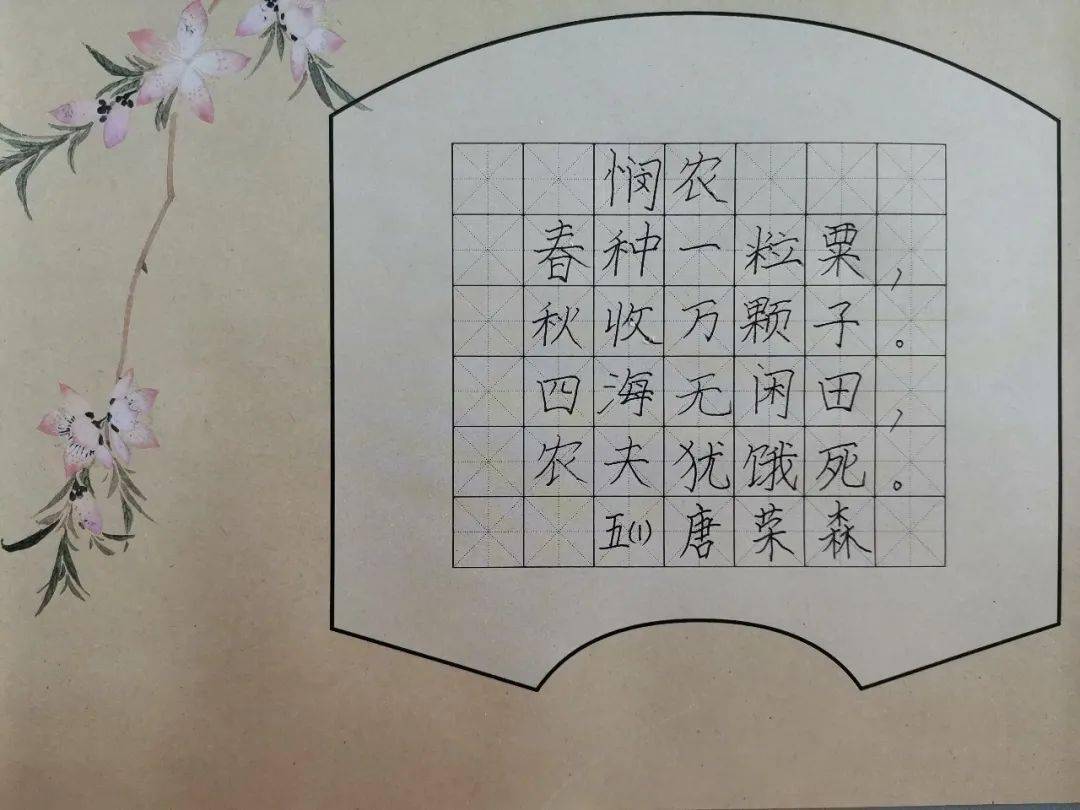 悯农
春种一粒粟，
秋收万颗子。
四海无闲田，
农夫犹饿死。
五(1)唐荣森